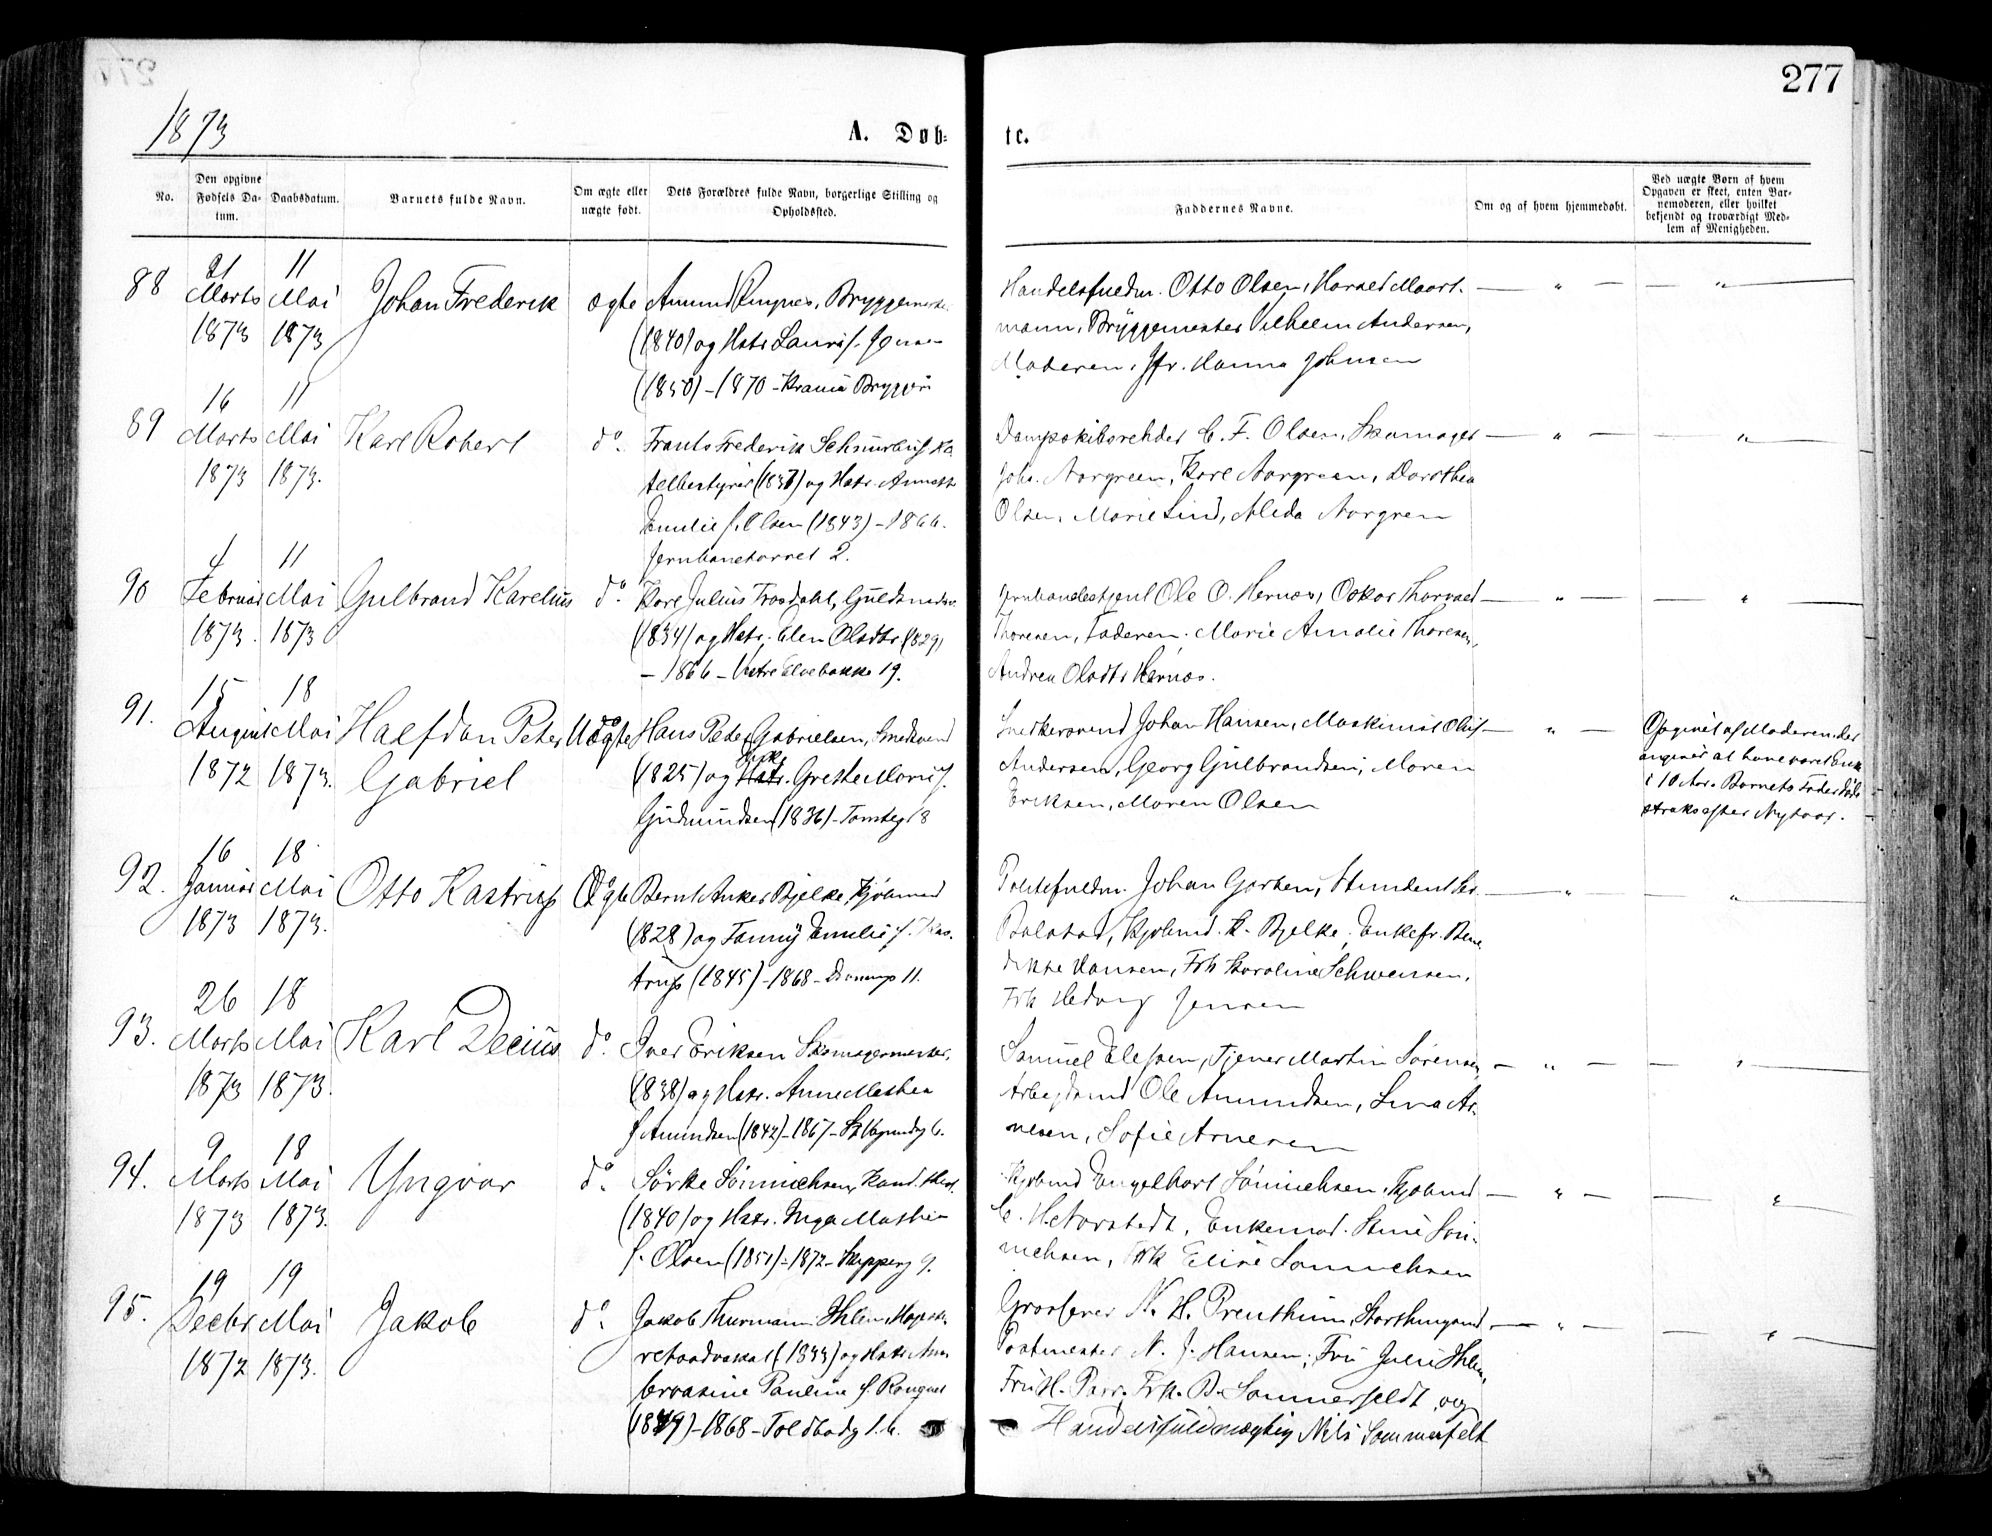 277
1873
A. Døb-
te.
No.
Den opgivne Fødsels Datum.
Daabsdatum.
Barnets fulde Navn.
Om ægte eller uægte født.
Dets Forældres fulde Navn, borgerlige Stilling og Opholdssted.
Faddernes Navne.
Om og af hvem hjemmedøbt.
Ved uægte Børn af hvem Opgaven er skeet, enten Barnemoderen, eller hvilket bekjendt og troværdigt Medlem af Menigheden.
88
21 Marts 1873
11 Mai 1873
Johan Frederik
ægte
Amund Ringnes, Bryggemeste
(1840) og Hstr Lauri f.
(1850) - 1870 - Krania Bryggeri
Handelsfuldm. Otto Olsen, Harald Moort-
mann, Bryggemester Vilhelm Andersen,
Moderen, Jfr. Hanna Johnsen
89
16 Marts 1873
11 Mai 1873.
Karl Robert
do.
Frants Frederik Schnurbus Ho
telbestyrer (1837) og Hstr. Annette
Emilie f. Olsen (1843) - 1866.
Jernbanetorvet 2.
C. F. Olsen, Skomager
Johs. Norgreen, Karl Norgreen, Dorothea
Olsen, Marie Lind, Alida Norgren
90
4 Februar 1873.
11 Mai 1873
Gulbrand Karelius
do.
Karl Julius Trosdahl, Guldsmedsv.
(1834) og Hstr. Elen Olsdtr (1829)
- 1866 - Vestre Elvebakke 19.
Ole O. Hernæs, Oskar Thorvald
Thoresen, Faderen. Marie Amalie Thoresen,
Andrea Olsdtr Hernæs.
91.
15 August 1872
18 Mai 1873.
Halfdan Peter
Gabriel
Uægte
Hans Peder Gabrielsen, Smedsvend
(1825) og Grethe Marie f.
Gudmundsen (1836) - Tomtegt 8
Snedkersvend Johan Hansen, Maskinist Oluf
Andersen, Georg Gulbrandsen, Maren
Eriksen, Maren Olsen
Opgivet af Moderen, der
angiver at have været Enke
i 10 Aar. Barnets Fader døde
straks efter Nytaar.
92.
16 Januar 1873
18 Mai 1873.
Otto Kastrup
Ægte
Bernt Anker Bjelke, Kjøbmand
(1828) og Fanny Emilie f. Kas-
trup (1845) - 1868 - 11.
Politifuldm. Johan Gørsen, Student
Kjøbmd. K. Bjelke, Enkefr. Bene
dikte Hansen, Frk Karoline Schwensen,
Frk Hedvig Jensen
93.
26 Marts 1873
18 Mai 1873.
Karl Decius
do.
Iver Eriksen Skomagermester,
(1838) og Hstr. Anne Mathea
f Amundsen (1842) - 1867 - 6.
Samuel Elefsen, Tjener Martin Sørensen,
Arbeidsmd Ole Amundsen, Lina Ar-
nesen, Sofie Arnesen
94.
9 Marts 1873
18 Mai 1873.
Yngvar
do.
Sørke Sønnichsen, Kand. theol.
(1840) og Hstr. Inga Mathea
f. Olsen (1851) - 1872 - Skipperg 9.
Kjøbmd Engelhart Sønnichsen, Kjøbmd
C. H. Norstedt, Enkemad. Stine Søn-
nichsen, Frk Elise Sønnichsen
95.
19 Decbr 1872
19 Mai 1873.
Jakob
do.
Jakob Thurmann Ihlen, Høieste
retsadvokat (1833) og Hstr. Am
brosine Pauline f. Rouquet
(1849) - 1868 - Toldbodg 1.b.
Grosserer N. H. Prenthun, Storthingsmd.
Postmester N. J. Hansen, Fru Julie Ihlen,
Fru H. Parr. Frk. B. Sommerfeldt og
Handelsfuldmægtig Nils Sommerfelt